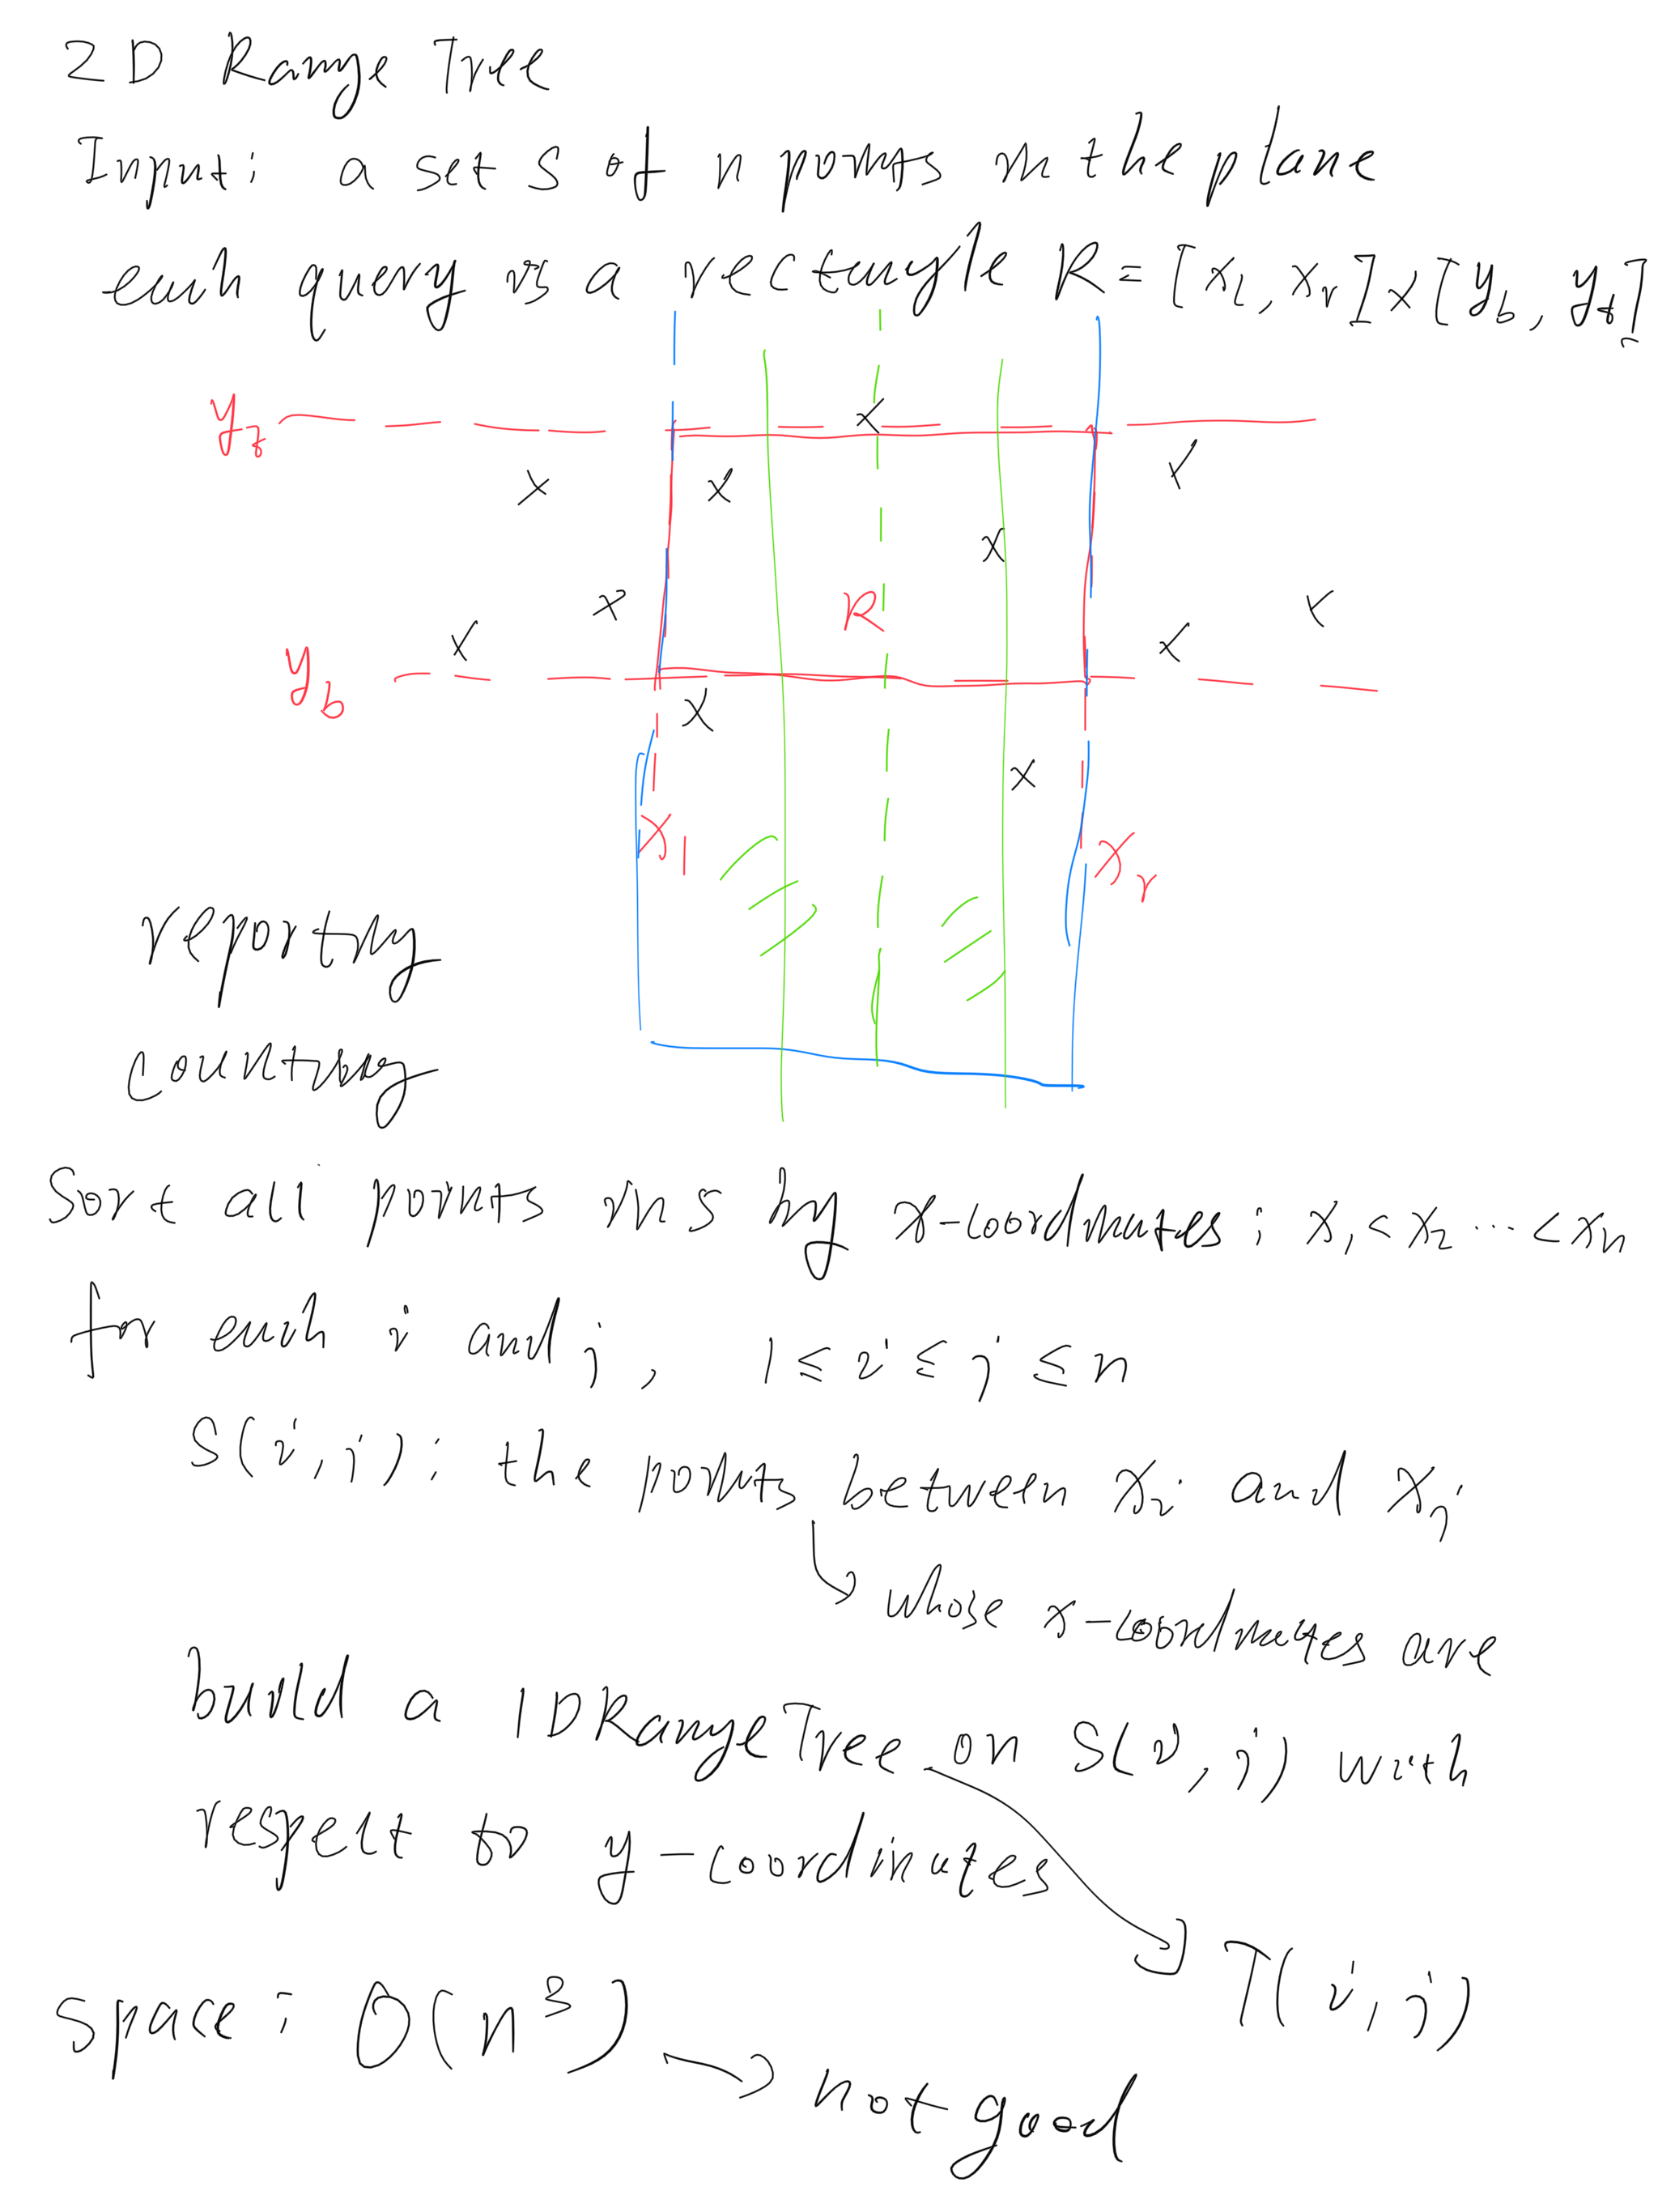 2D Range Tree
Input: a set S of n points in the plane
each query is a rectangle R = [x_l, x_r] × [y_b, y_t]
y_t
R
y_b
x_l
x_r
reporting
counting
Sort all points in S by x-coordinates: x_1 < x_2 ... < x_n
for each i and j, 1 ≤ i ≤ j ≤ n
S(i, j): the points between x_i and x_j
whose x-coordinates are
build a 1DRangeTree on S(i, j) with
respect to y-coordinates
T(i, j)
Space: O(n^3)
not good